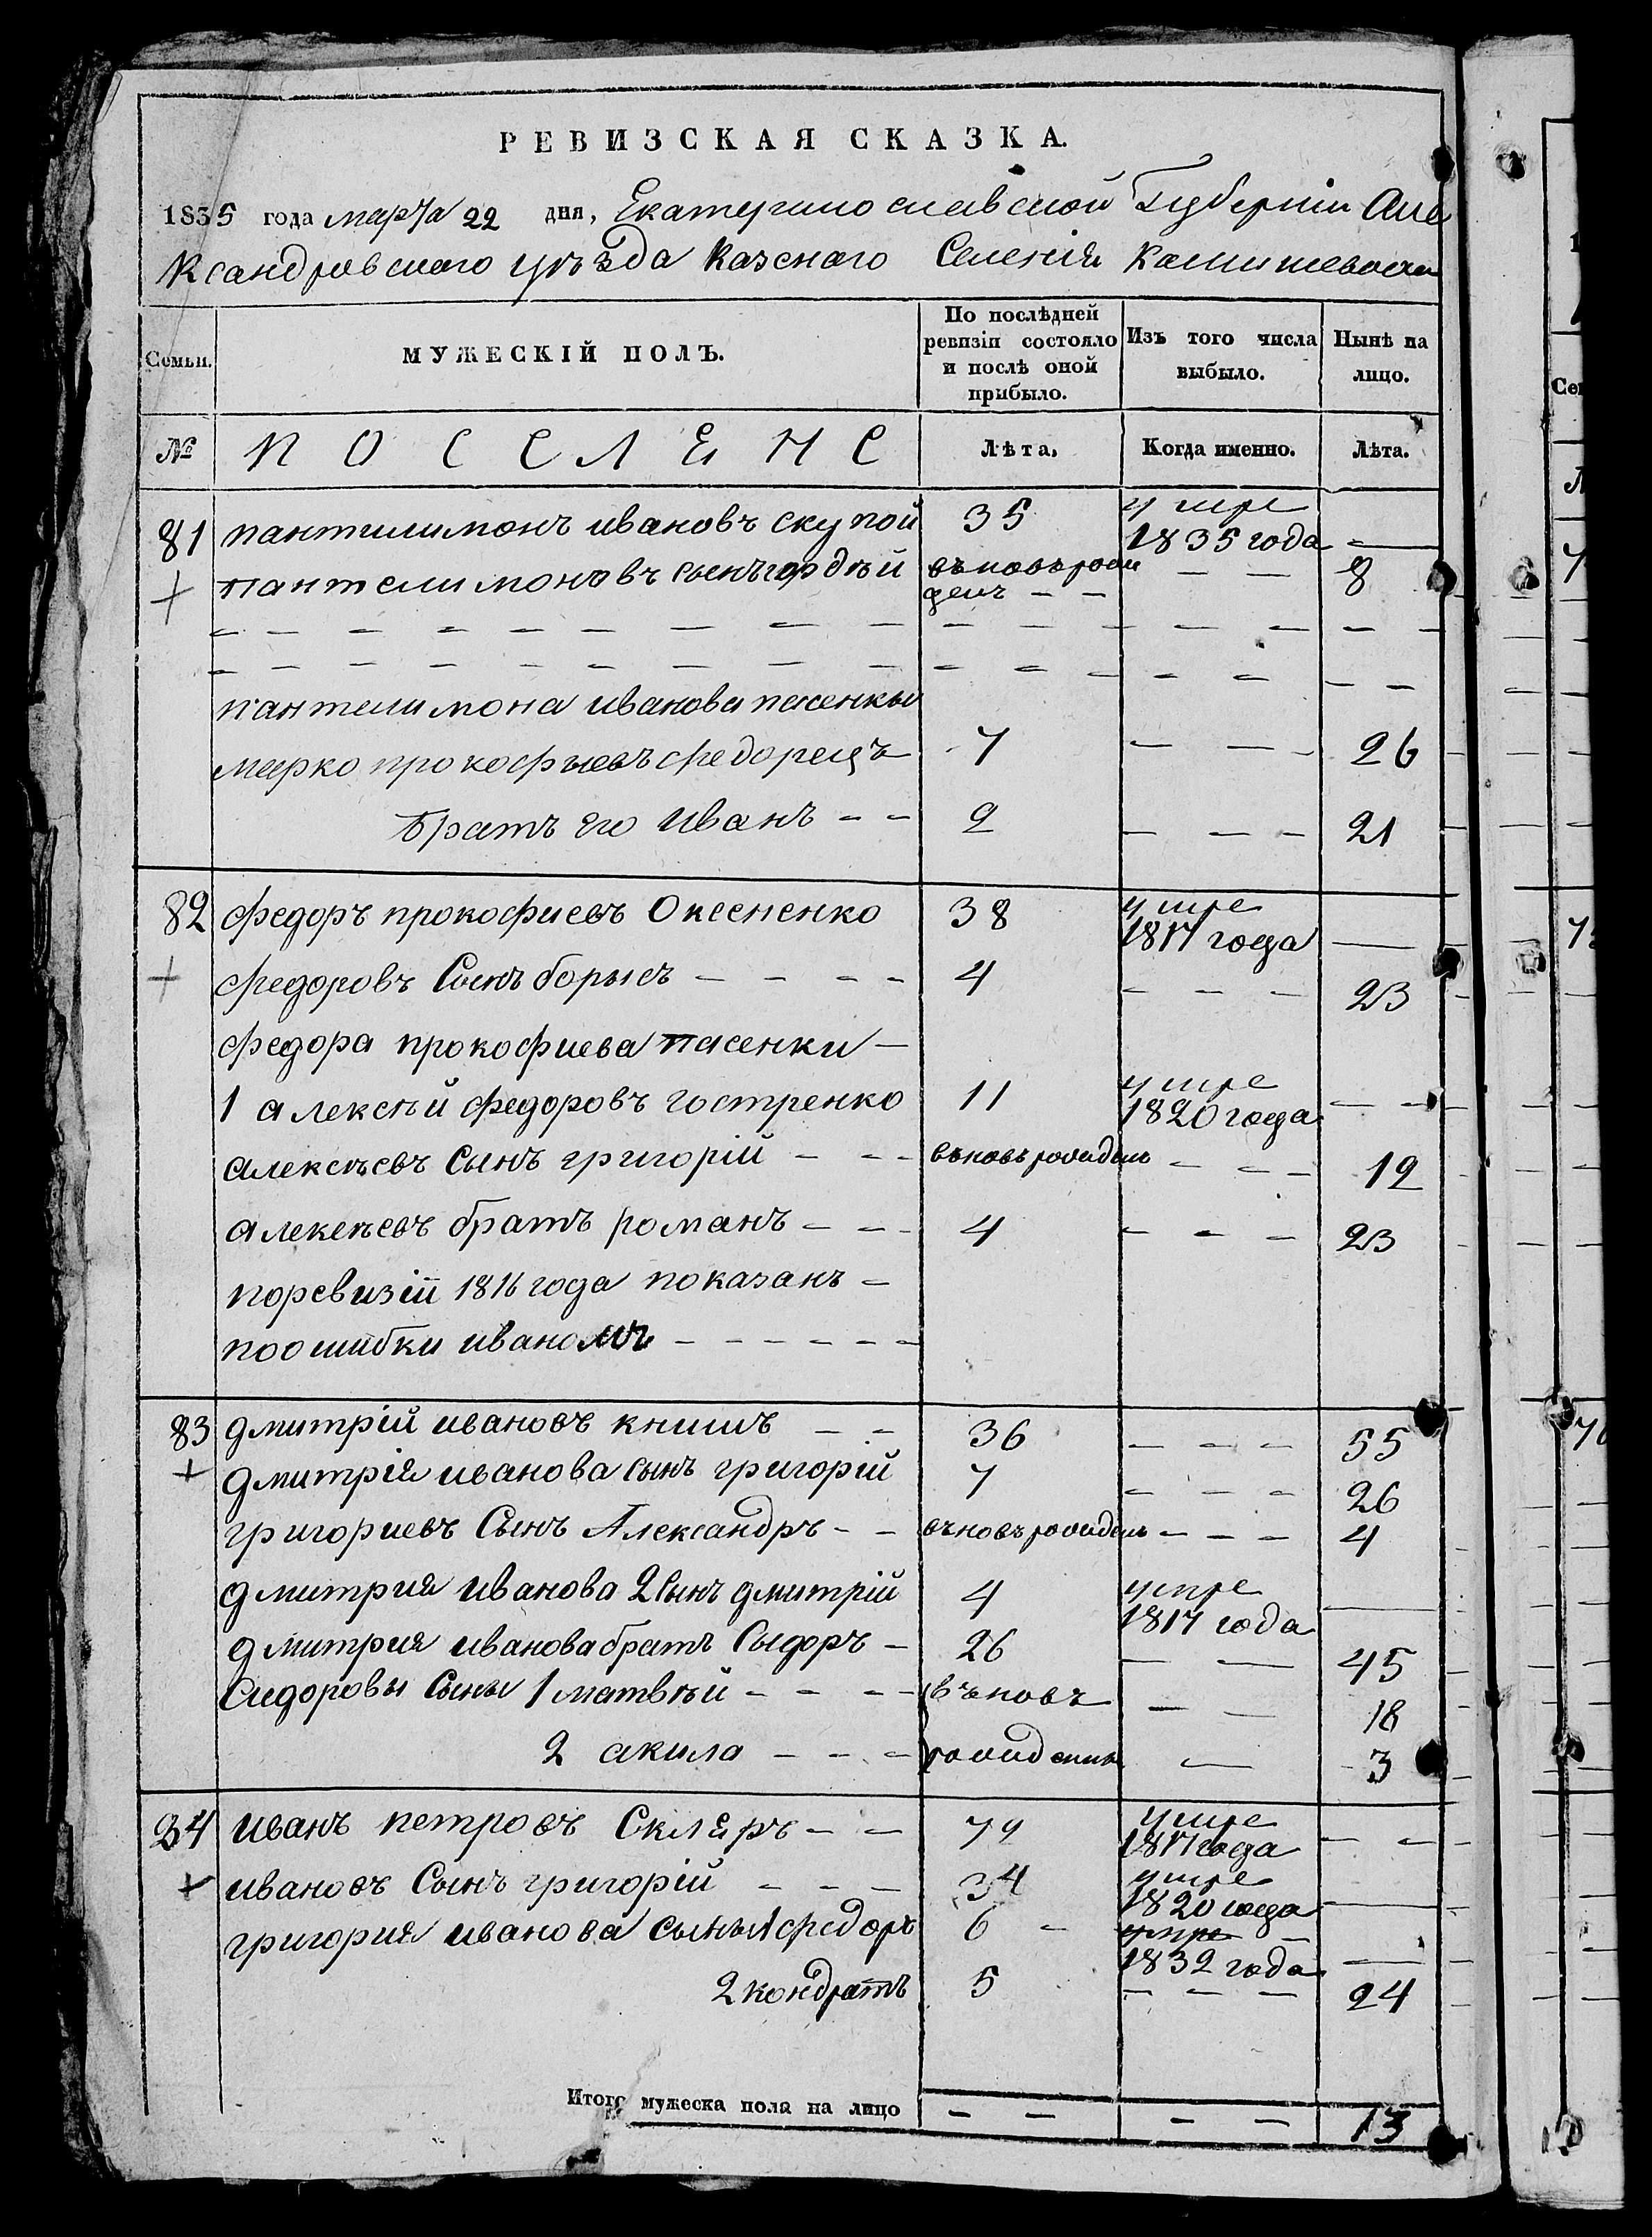 РЕВИЗСКАЯ СКАЗКА.
1835 года марта 22 дня, Екатеринославской Губернiи Але
ксандровского уѣзда Казенаго Селенiя Камишеваски
Семьи. МУЖЕСКIЙ ПОЛЪ. По послѣдней ревизiи состояло и послѣ оной прибыло. Изъ того числа выбыло. Нынѣ на лицо.
№ ПОССЕЛЕНЕ Лѣта. Когда именно. Лѣта.
81 пантилимонъ ивановъ скупой 35 умре 1835 года —
+ пантелимоновъ сынъ гордѣй въновърожденъ — — 8
— — — — — — — — — — — — — — — —
— — — — — — — — — — — — — — — —
пантелимона иванова пасенкы
марко прокофьевъ федорецъ 7 — — 26
братъ его иванъ — — 2 — — — 21
82 федоръ прокофиевъ Оксененко 38 умре 1817 года —
+ федоровъ Сынъ борысъ — — — — 4 — — — 23
федора прокофиева пасенки —
1 алексѣй федоровъ гостренко 11 умре 1820 года — —
алексѣевъ Сынъ григорiй — — — въновърожденъ — — — 19
алексѣевъ братъ романъ — — — 4 — — — 23
поревизiй 1816 года показанъ —
поошибки иваномъ — — — — — —
83 дмитрiй ивановъ книшъ — — 36 — — — 55
+ дмитрiя иванова сынъ григорiй 7 — — — 26
григориевъ Сынъ Александръ — — въновърожденъ — — — 4
дмитрия иванова 2 Сынъ дмитрiй 4 умре 1817 года —
дмитрия иванова братъ Сыдоръ — 26 — — 45
Сидоровы Сыны 1 матвѣй — — — — въновъ — — 18
2 акила — — — рожденны — 3
84 иванъ петровъ Скляръ — — 79 умре 1817 года — —
+ ивановъ Сынъ григорiй — — — 34 умре 1820 года —
григория иванова сыны 1 федоръ 6 — умре — 1832 года —
2 кондратъ 5 — — — 24
Итого мужеска пола на лицо — — — — 13